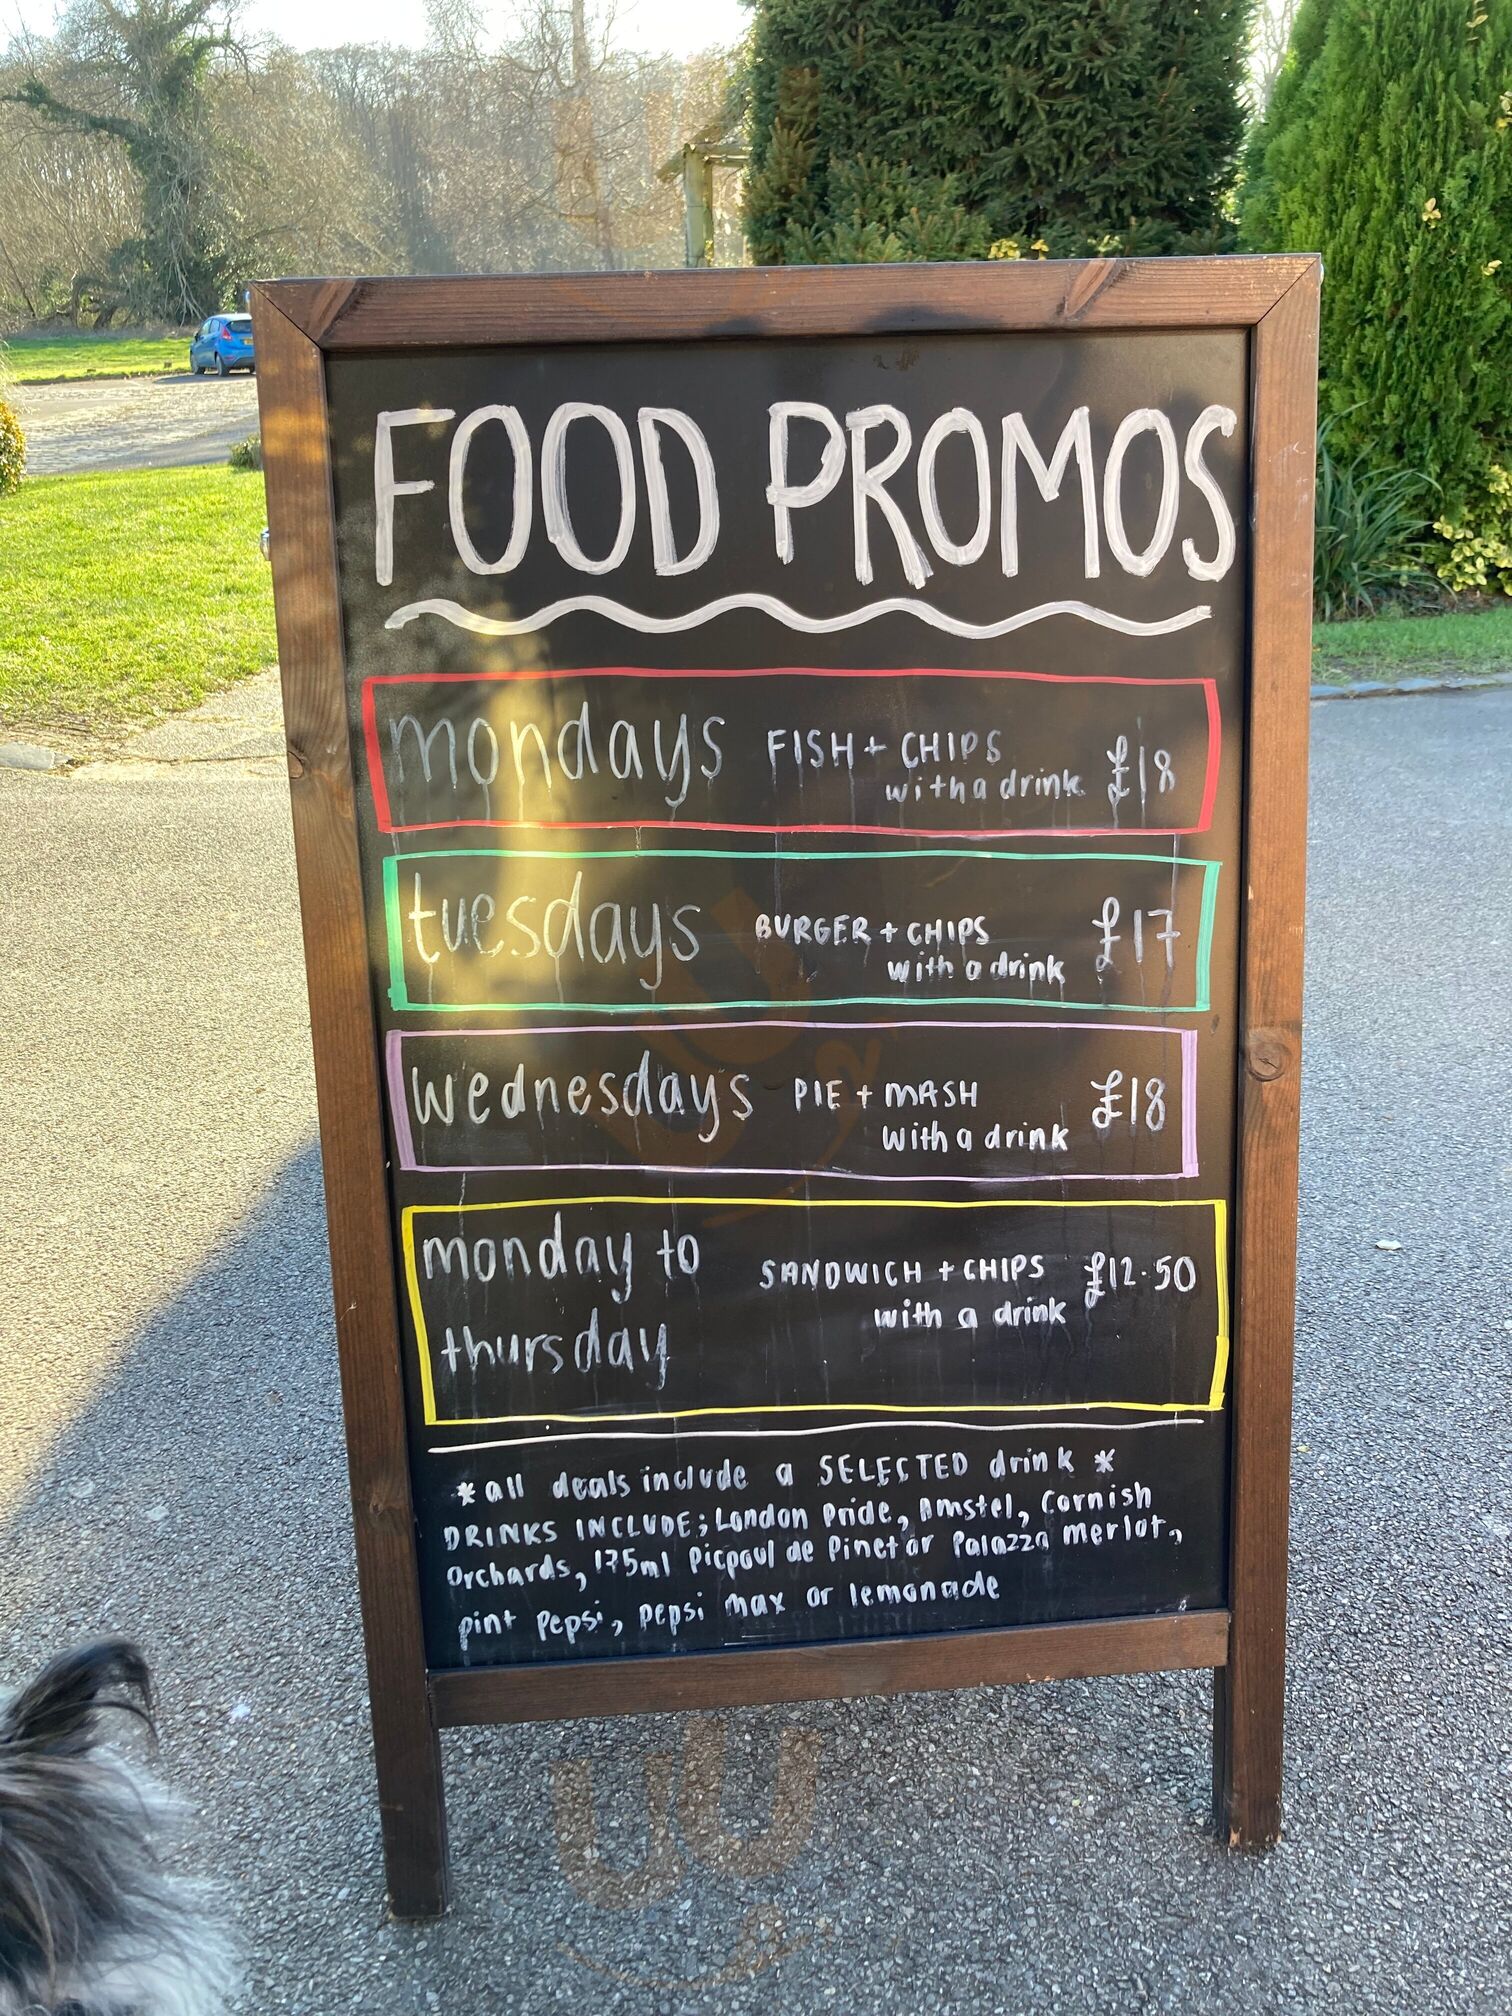 FOOD PROMOS
mondays FISH + CHIPS £18
with a drink
tuesdays BURGER + CHIPS £17
with a drink
wednesdays PIE + MASH £18
with a drink
monday to SANDWICH + CHIPS £12.50
thursday with a drink
*all deals include a SELECTED drink *
DRINKS INCLUDE; London Pride, Amstel, Cornish
Orchards, 175ml Picpoul de Pinet or Palazza merlot,
pint Pepsi, pepsi max or lemonade